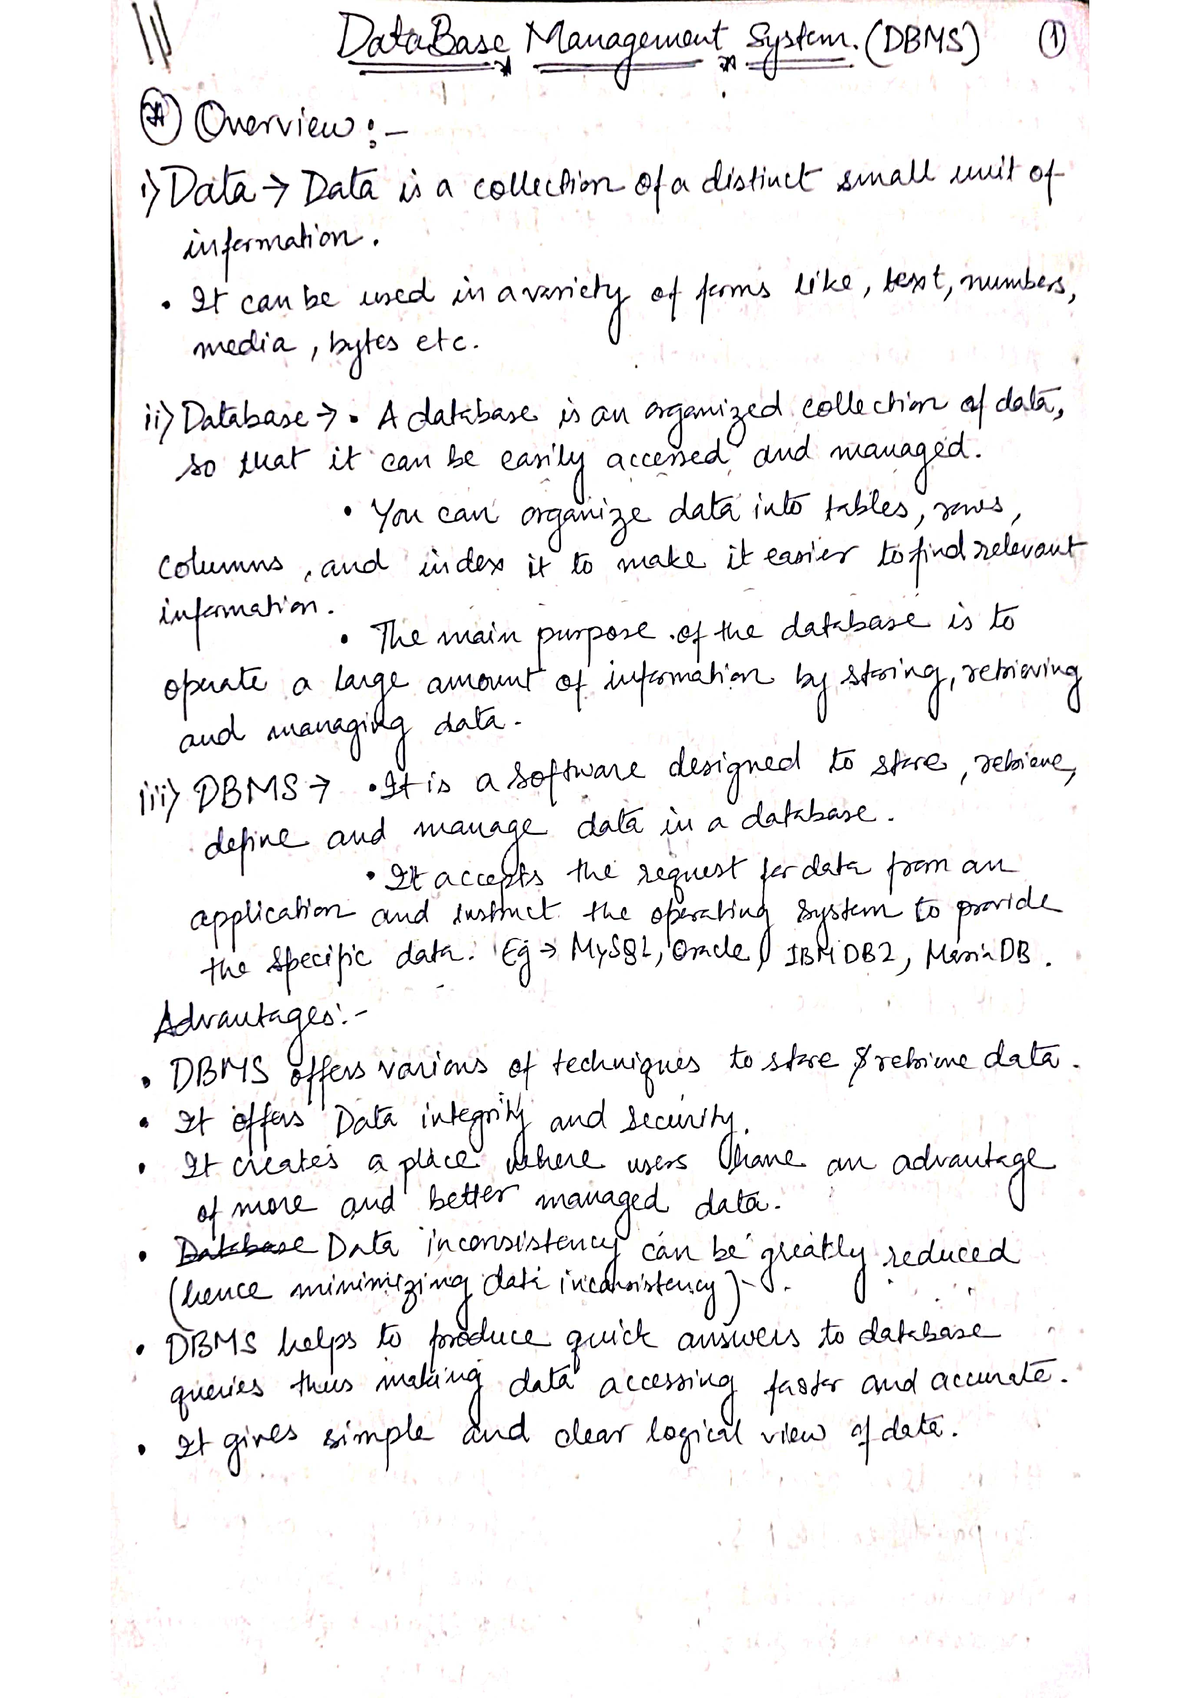 DataBase Management System. (DBMS) ①
Overview :-
i) Data → Data is a collection of a distinct small unit of
information.
• It can be used in a variety of forms like, text, numbers,
media, bytes etc.
ii) Database → • A database is an organized collection of data,
so that it can be easily accessed and managed.
• You can organize data into tables, rows,
columns, and index it to make it easier to find relevant
information.
• The main purpose of the database is to
operate a large amount of information by storing, retrieving
and managing data.
iii) DBMS → • It is a software designed to store, retrieve,
define and manage data in a database.
• It accepts the request for data from an
application and instruct the operating system to provide
the specific data. Eg → MySQL, Oracle, IBM DB2, MariaDB.
Advantages:-
• DBMS offers various of techniques to store & retrieve data.
• It offers Data integrity and security.
• It creates a place where users have an advantage
of more and better managed data.
• Database Data inconsistency can be greatly reduced
(hence minimizing data inconsistency).
• DBMS helps to produce quick answers to database
queries thus making data accessing faster and accurate.
• It gives simple and clear logical view of data.